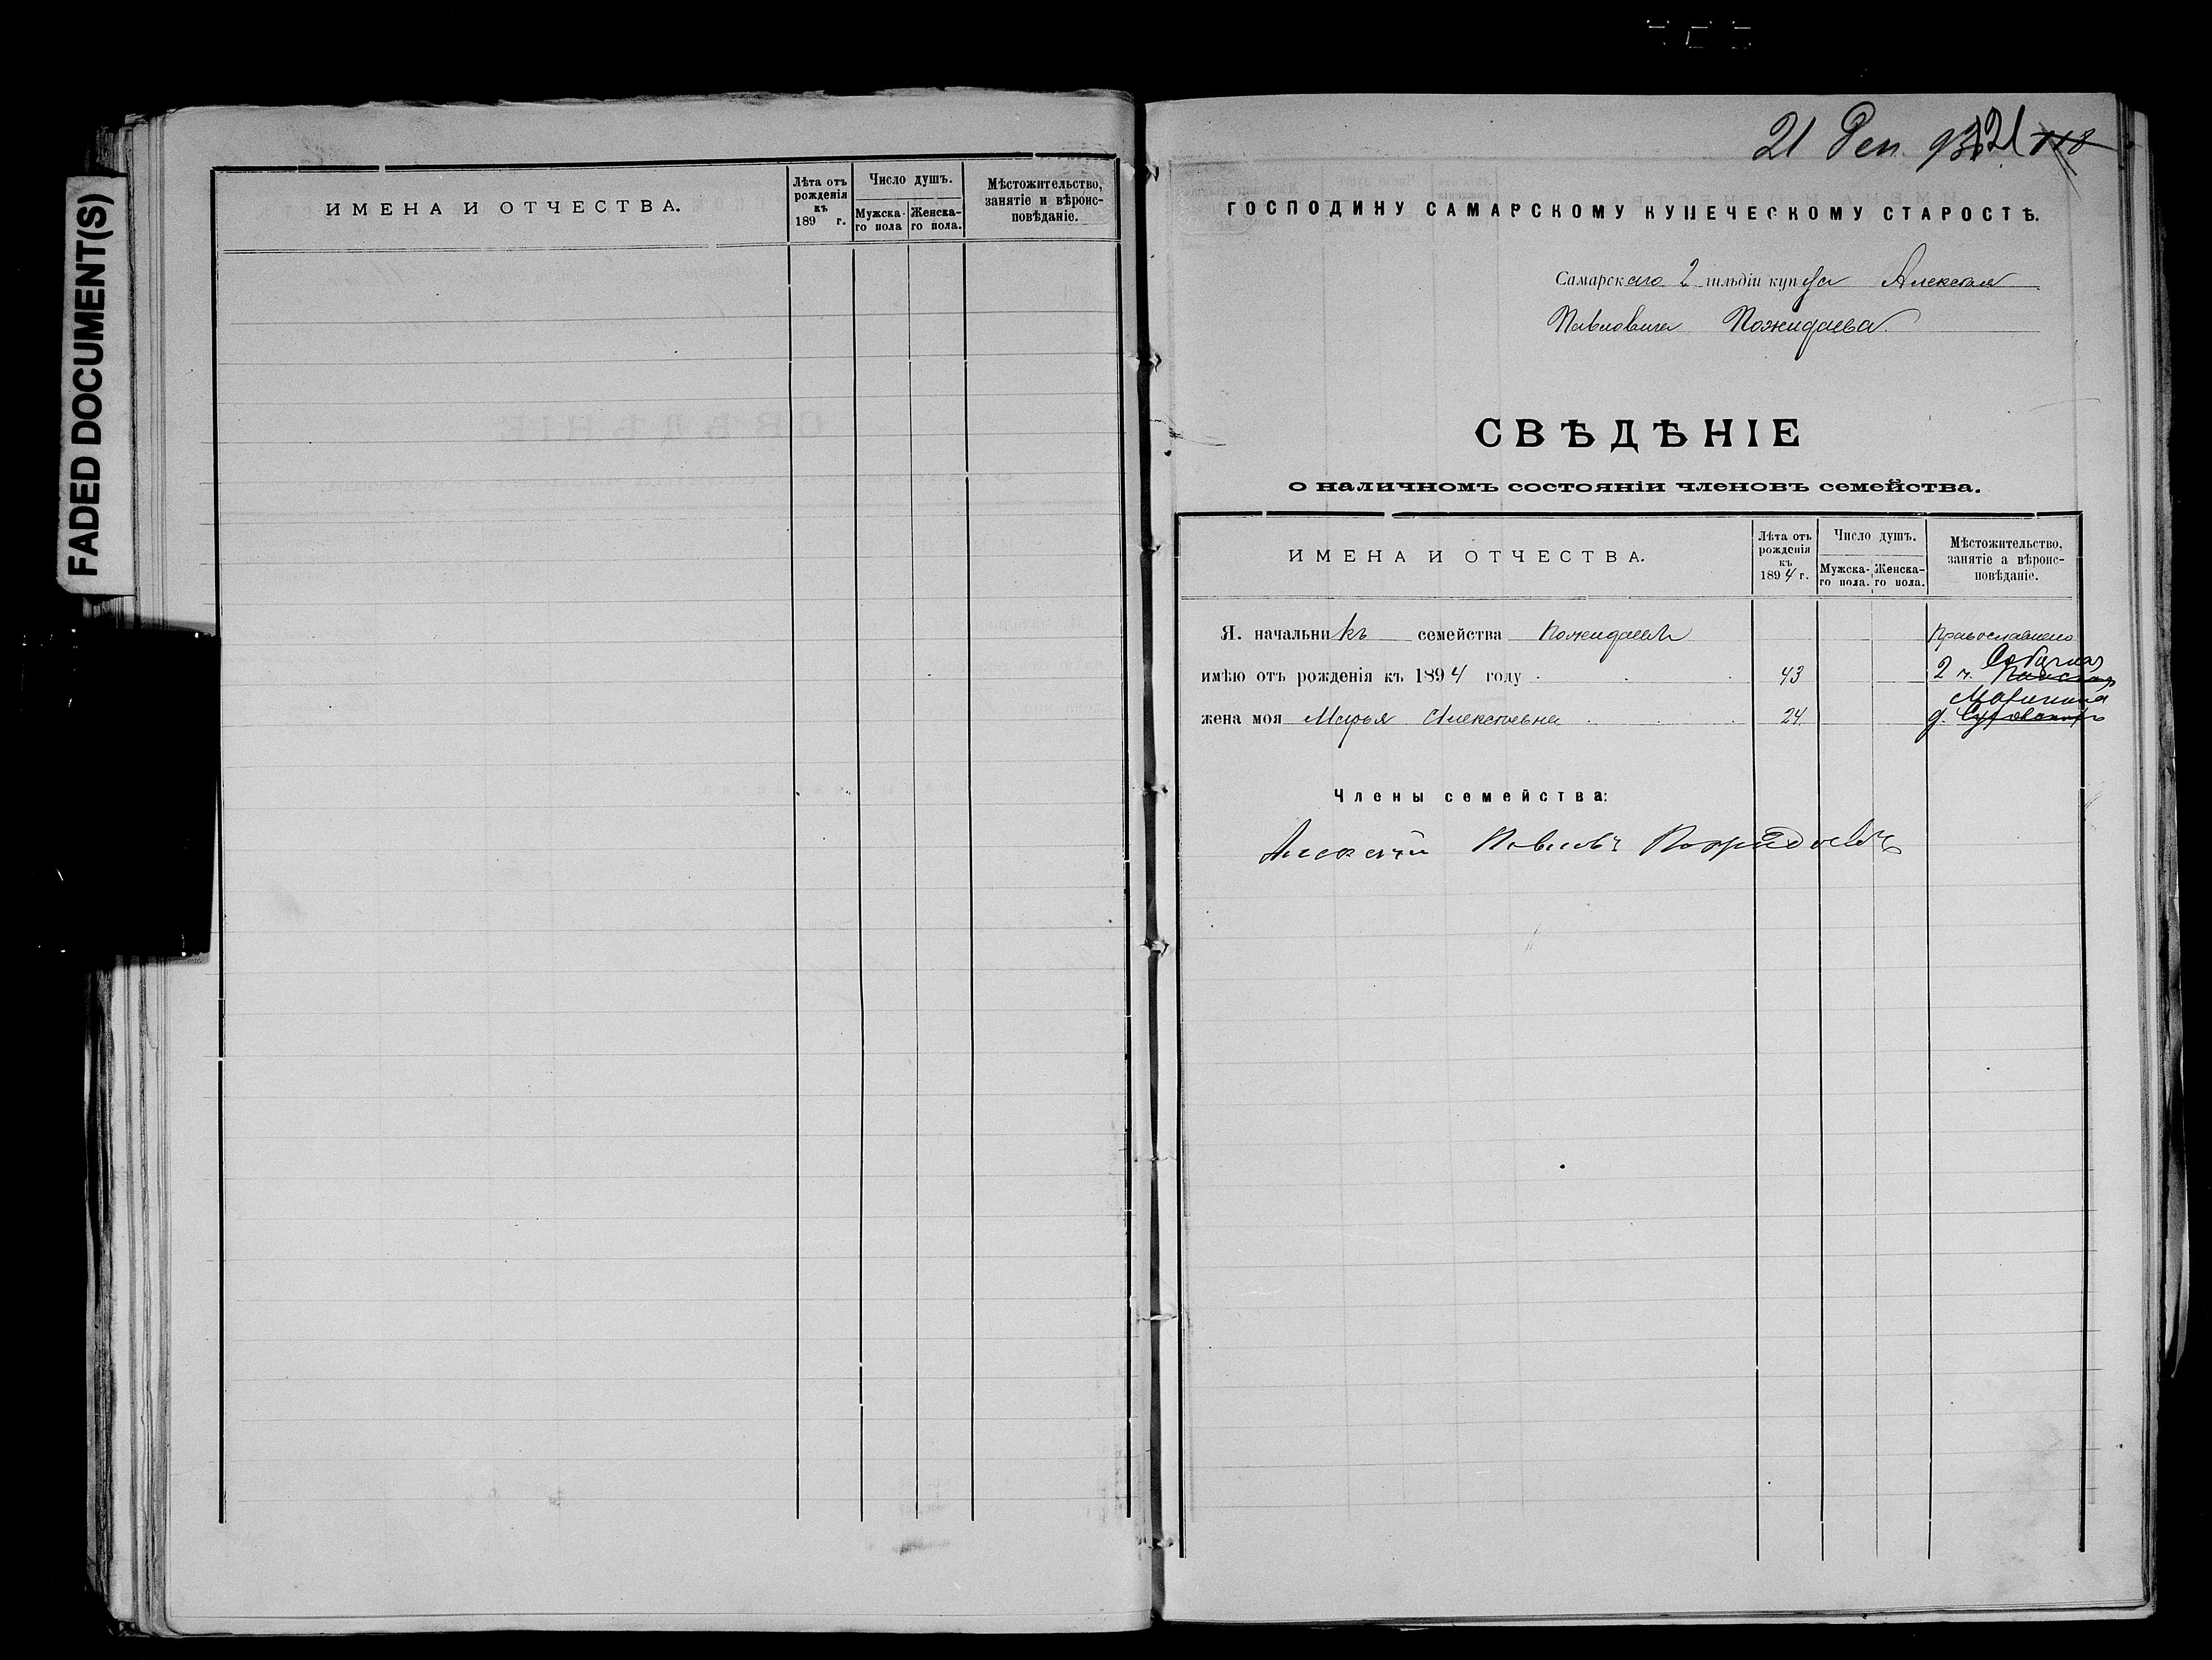 FADED DOCUMENT(S)
ИМЕНА И ОТЧЕСТВА.
Лѣта отъ рожденія къ 189 г.
Число душъ.
Мужска-го пола
Женска-го пола.
Мѣстожительство, занятіе и вѣроис-повѣданіе.
21 Дек. 93 121 118
ГОСПОДИНУ САМАРСКОМУ КУПЕЧЕСКОМУ СТАРОСТѢ.
Самарскаго 2 гильдіи купца Алексея
Павловича Пожидаева
СВѢДѢНІЕ
о наличномъ состояніи членовъ семейства.
ИМЕНА И ОТЧЕСТВА.
Лѣта отъ рожденія къ 1894 г.
Число душъ.
Мужска-го пола.
Женска-го пола.
Мѣстожительство, занятіе а вѣроис-повѣданіе.
Я. начальникъ семейства Пожидаевъ Православнаго
имѣю отъ рожденія къ 1894 году 43 2 ч.
жена моя Марья Алексеевна 24 д.
Члены семейства:
Алексей Павловъ Пожидаевъ